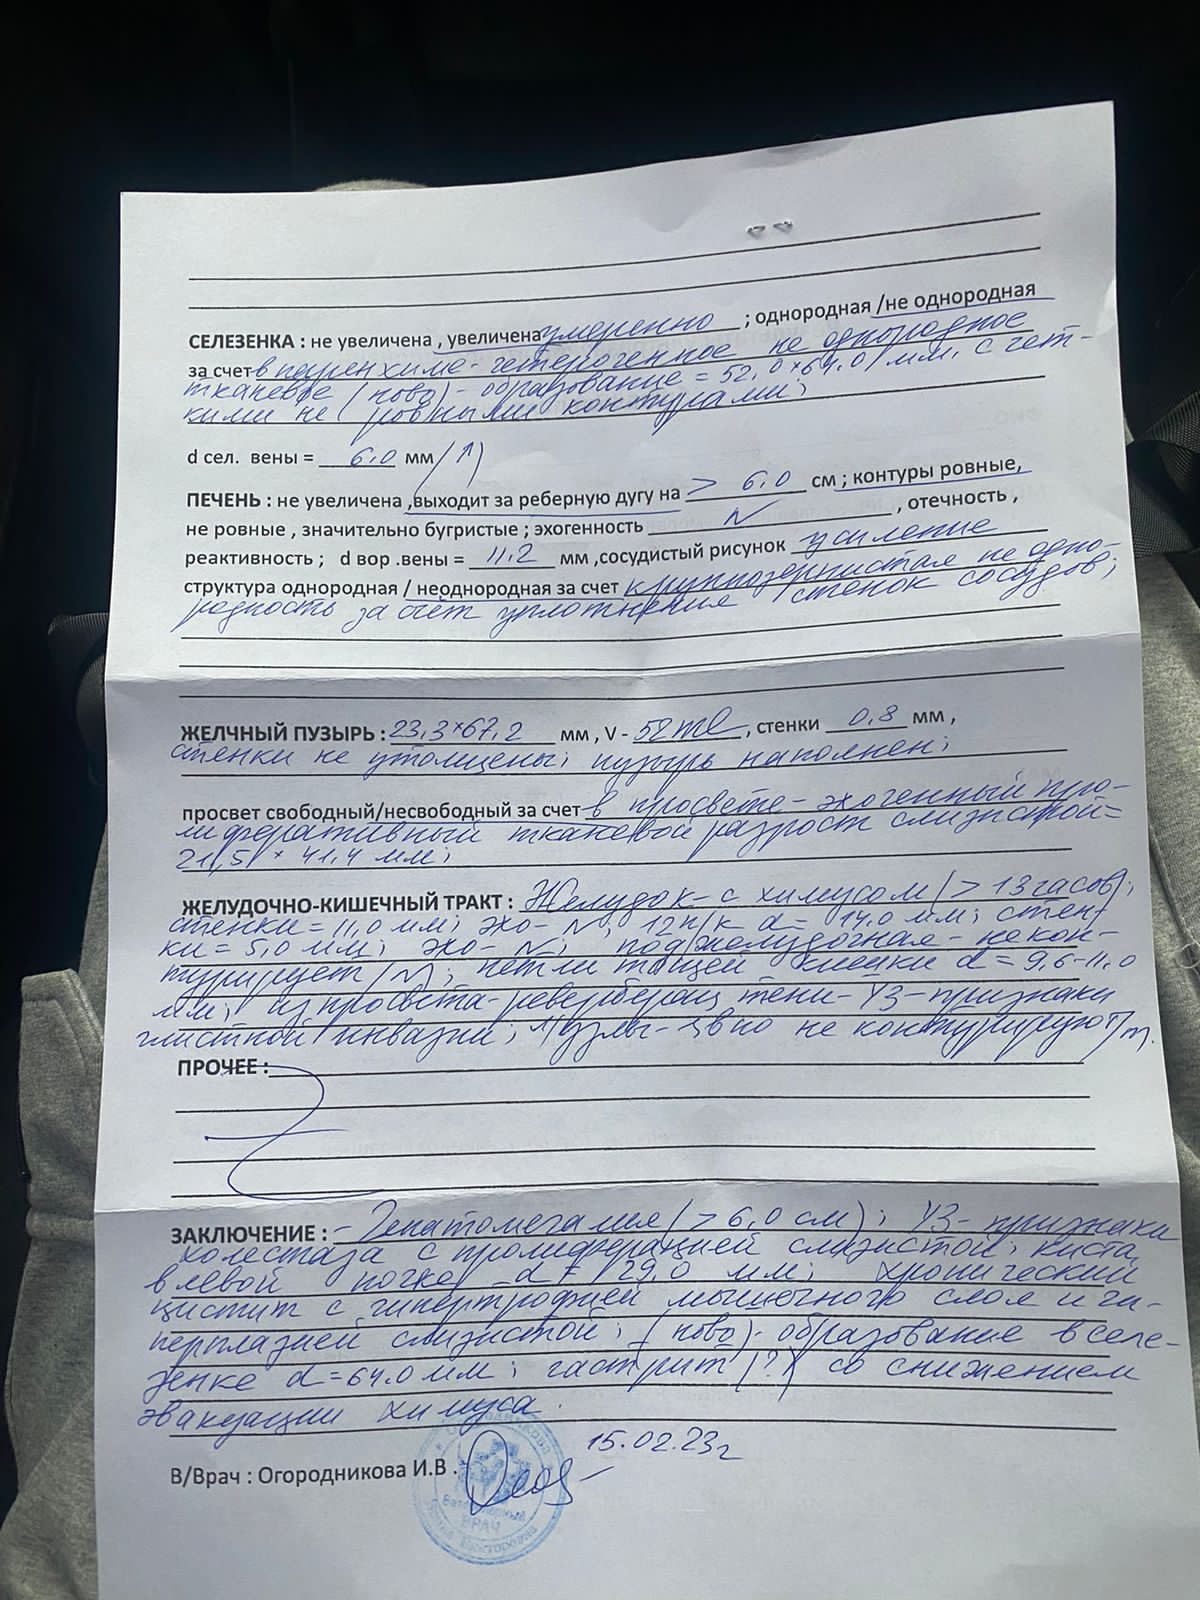 СЕЛЕЗЕНКА : не увеличена , увеличена умеренно ; однородная /не однородная
за счет в паренхиме - гетерогенное не однородное
тканевое (ново)- образование = 52,0×64,0/мм. с чет-
кими не ровными контурами;
d сел. вены = 6,0 мм (↑)
ПЕЧЕНЬ : не увеличена ,выходит за реберную дугу на > 6,0 см ; контуры ровные,
не ровные , значительно бугристые ; эхогенность N , отечность ,
реактивность ; d вор .вены = 11.2 мм ,сосудистый рисунок усиление
структура однородная / неоднородная за счет крупнозернистая не одно-
родность за счёт уплотнения стенок сосудов;
ЖЕЛЧНЫЙ ПУЗЫРЬ : 23,3×67,2 мм , V - 52ml , стенки 0,8 мм ,
стенки не утолщены; пузырь наполнен;
просвет свободный/несвободный за счет в просвете - эхогенный про-
лиферативный тканевой разрост слизистой=
21,5 × 41,4 мм;
ЖЕЛУДОЧНО-КИШЕЧНЫЙ ТРАКТ : Желудок - с химусом (> 13 часов);
стенки = 11,0 мм; эхо- N; 12п/к d= 14.0 мм; стен-
ки = 5,0 мм; эхо- N; поджелудочная - не кон-
турирует (N); петли тощей кишки d = 9,6-11,0
мм; из просвета - реверберац тени - УЗ-признаки
глистной инвазии; л/узлы - не контурируют/m.
ПРОЧЕЕ :
ЗАКЛЮЧЕНИЕ : - Гепатомегалия (> 6,0 см); УЗ-признаки
холестаза с пролиферацией слизистой; киста
в левой почке d= 29.0 мм; хронический
цистит с гипертрофией мышечного слоя и ги-
перплазией слизистой; (ново)- образование в селе-
зенке d=64.0 мм; гастрит (?) со снижением
эвакуации химуса.
15.02.23г
В/Врач : Огородникова И.В .
ВРАЧ